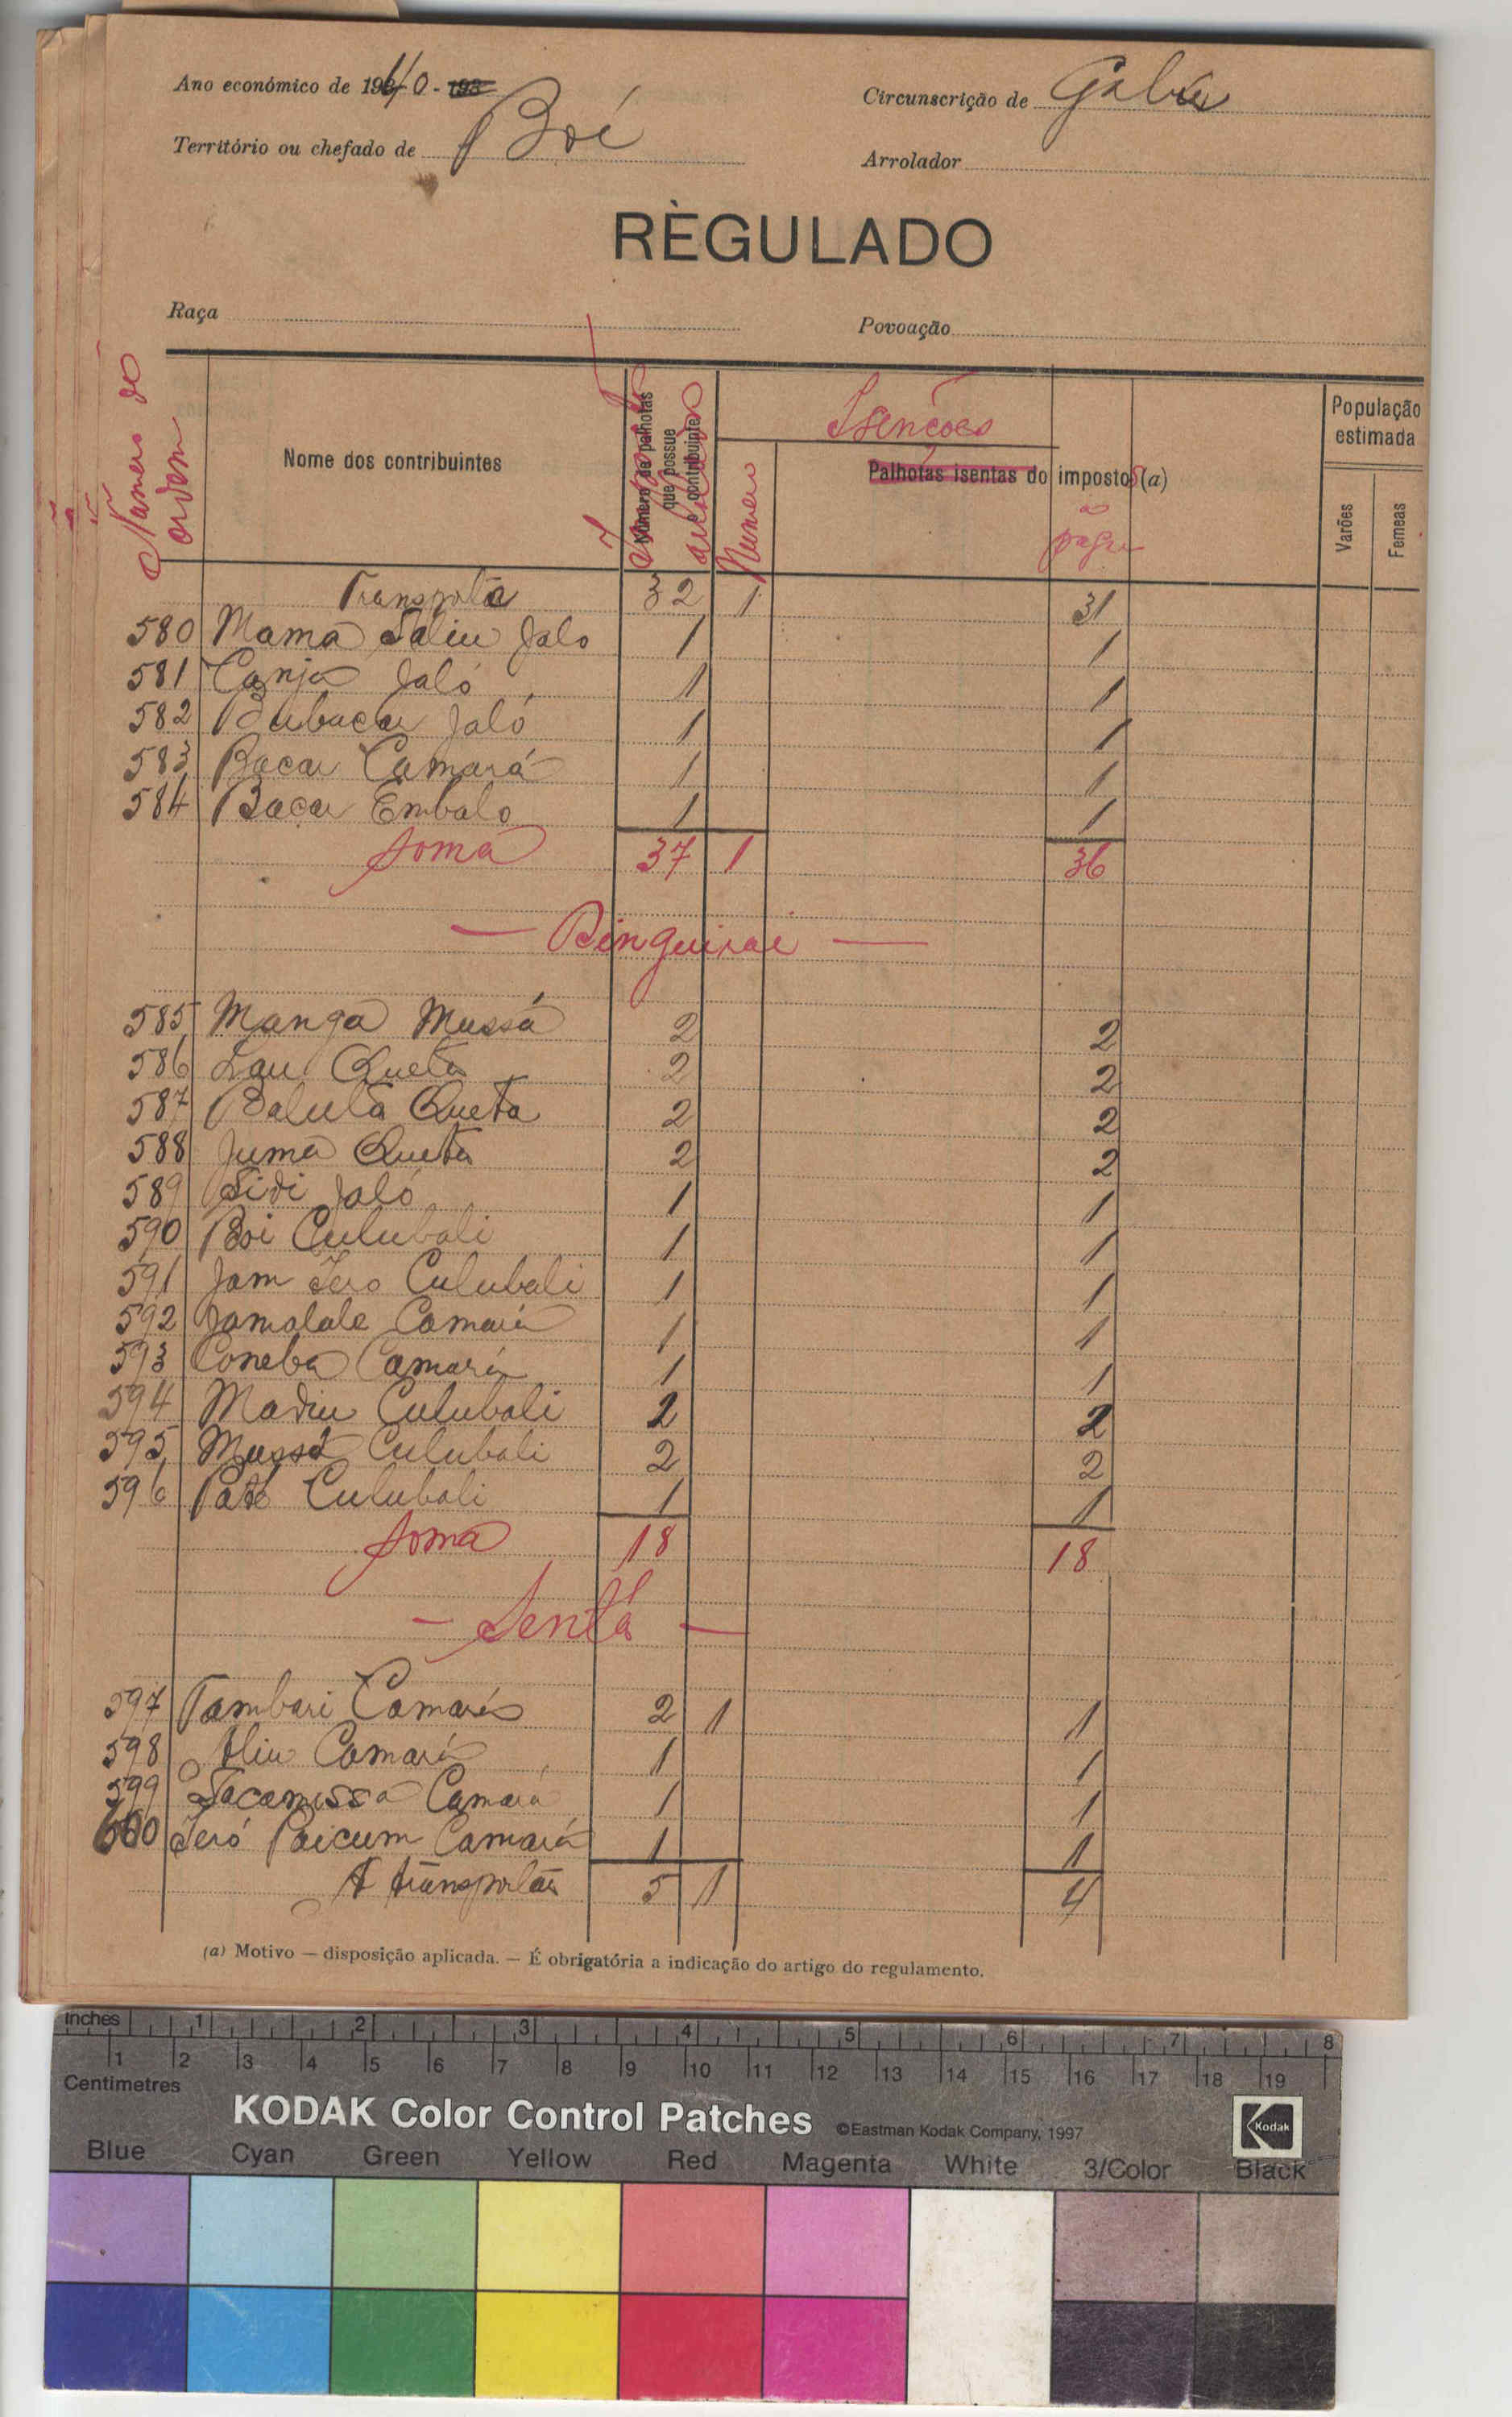 Ano económico de 1940 - 193
Circunscrição de Gabú
Território ou chefado de Boé
Arrolador
RÈGULADO
Raça
Povoação
Numero de ordem
Nome dos contribuintes
Número de palhotas que possue o contribuinte
arrolados
Numero
Isenções
Palhotas isentas do imposto (a)
a pagar
População estimada
Varões
Femeas
Transporta 32 1 31
580 Mama Saliu Jalo 1 1
581 Canja Jaló 1 1
582 Bubacar Jaló 1 1
583 Bacar Camará 1 1
584 Bacar Embalo 1 1
Soma 37 1 36
— Binguirai —
585 Manga Mussá 2 2
586 Lau Queta 2 2
587 Baluta Queta 2 2
588 Juma Queta 2 2
589 Sidi Jaló 1 1
590 Boi Culubali 1 1
591 Jam Sero Culubali 1 1
592 Jamalale Camará 1 1
593 Coneba Camará 1 1
594 Madiu Culubali 2 2
595 Mussá Culubali 2 2
596 Paté Culubali 1 1
Soma 18 18
— Sentá —
597 Tambari Camará 2 1 1
598 Aliu Camará 1 1
599 Sacamissa Camará 1 1
600 Seró Paicum Camará 1 1
A transportar 5 1 4
(a) Motivo — disposição aplicada. — É obrigatória a indicação do artigo do regulamento.
inches 1 2 3 4 5 6 7 8
1 2 3 4 5 6 7 8 9 10 11 12 13 14 15 16 17 18 19
Centimetres
KODAK Color Control Patches ©Eastman Kodak Company, 1997 Kodak
Blue Cyan Green Yellow Red Magenta White 3/Color Black